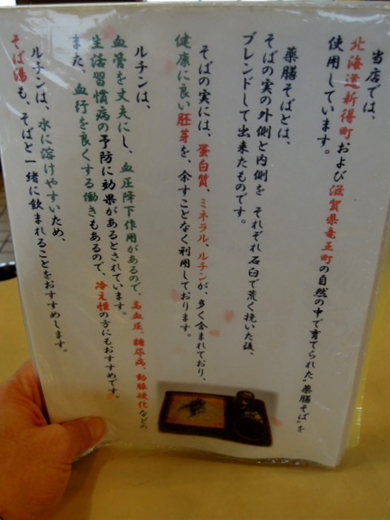 当店では、
北海道新得町および滋賀県竜王町の自然の中で育てられた"薬膳そば"を
使用しています。
薬膳そばとは、
そばの実の外側と内側を それぞれ石臼で荒く挽いた後、
ブレンドして出来たものです。
そばの実には、蛋白質、ミネラル、ルチンが、多く含まれており、
健康に良い胚芽を、余すことなく利用しております。
ルチンは、
血管を丈夫にし、血圧降下作用があるので、高血圧、糖尿病、動脈硬化などの
生活習慣病の予防に効果があるとされています。
また、血行を良くする働きもあるので、冷え性の方にもおすすめです。
ルチンは、水に溶けやすいため、
そば湯も、そばと一緒に飲まれることをおすすめします。